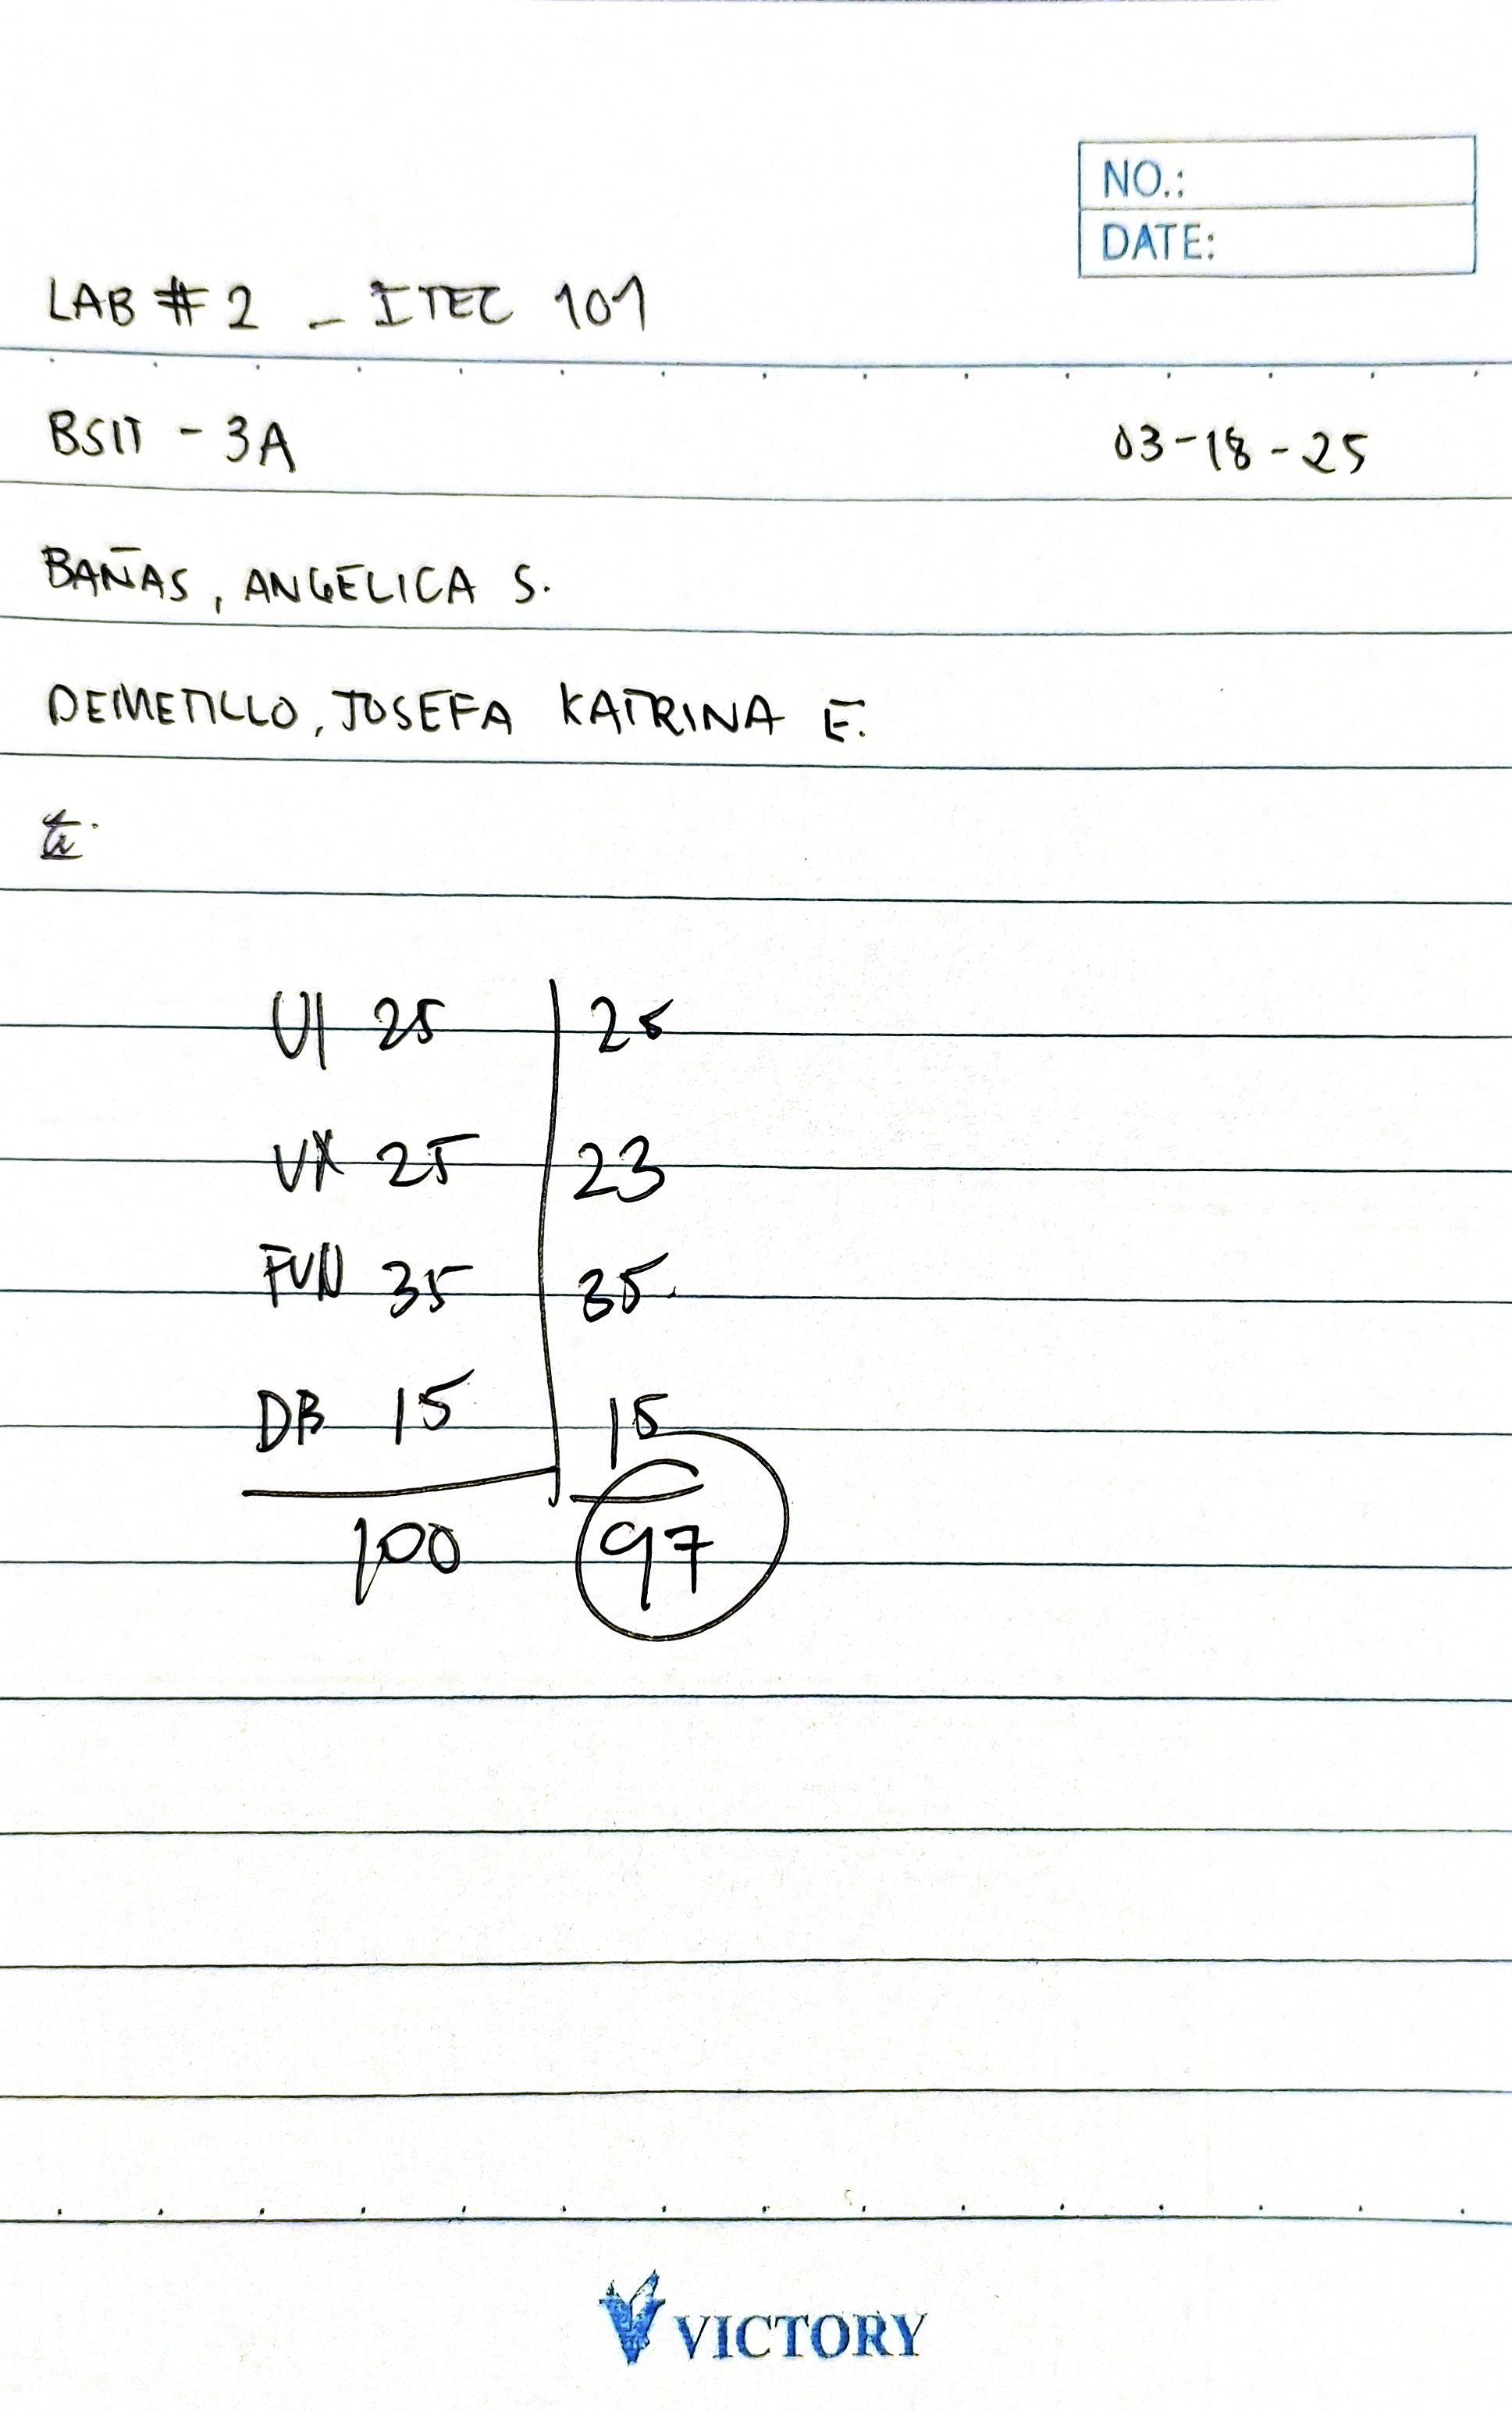 NO.:
DATE:
LAB # 2 - ITEC 101
BSIT - 3A 03-18-25
BAÑAS, ANGELICA S.
DEMETILLO, JOSEFA KATRINA E.
UI 25 25
UX 25 23
FUN 35 35
DB 15 15
100 97
VICTORY